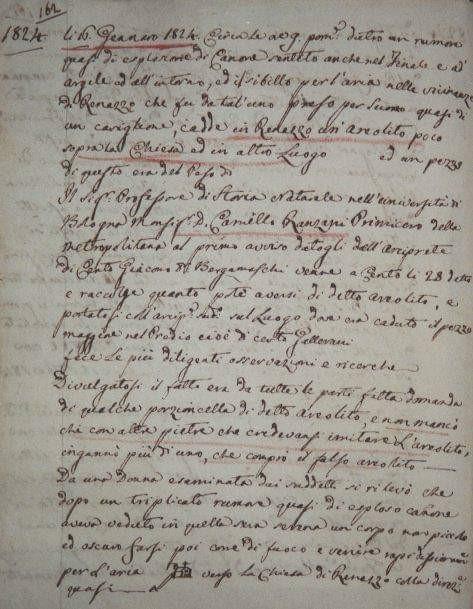 162
1824
li 16. Gennaro 1824. Circa le ore 9. pom.e dietro un rumore
quasi di esplosione di Canone sentito anche nel Finale e ad
argile ed all'intorno, ed il sibello per l'aria nelle vicinanze
di Renazzo che fu da tal'uno preso per fumo quasi di
un cariglione, cadde in Renazzo un Areolito poco
sopra la Chiesa ed in altro Luogo ed un pezzo
di questo era del Peso di
Il Sig.r Professore di Storia Naturale nell'università di
Bologna Monsig.r D. Camillo Ranzani Primicero della
metropolitana al primo avviso datogli dell'Arciprete
di Cento Giacomo Bergamaschi venne a Cento li 28 detto
e raccolse quanto potè aversi di detto areolito, e
portatosi coll'arcip.e sul Luogo dove era caduto il pezzo
massime nel Predio cioè di certo Gallerani
fece le più diligenti osservazioni e ricerche
Divulgatosi il fatto era da tutte le parti fatta domanda
di qualche porzioncella di detto Areolito, e non mancò
chi con altre pietre che credevansi imitare L'areolito,
ingannò più di uno, che comprò il falso areolito
Da una Donna esaminata dai suddetti si rilevò che
dopo un triplicato rumore quasi di esploso cañone
aveva veduto in quella sera serena un corpo non piccolo
ed oscuro farsi poi come di fuoco e venire
per l'aria verso la Chiesa di Renazzo colla direz.e
quasi a